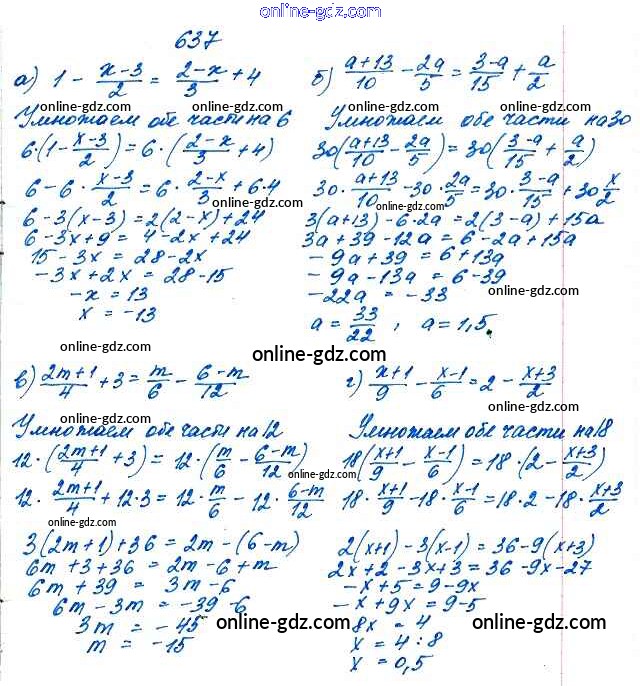 online-gdz.com
637
а) 1 - (x-3)/2 = (2-x)/3 + 4
Умножаем обе части на 6
online-gdz.com
6·(1 - (x-3)/2) = 6·((2-x)/3 + 4)
online-gdz.com
6 - 6·(x-3)/2 = 6·(2-x)/3 + 6·4
6 - 3(x-3) = 2(2-x) + 24
online-gdz.com
6 - 3x + 9 = 4 - 2x + 24
15 - 3x = 28 - 2x
-3x + 2x = 28 - 15
-x = 13
x = -13
online-gdz.com
б) (a+13)/10 - 2a/5 = (3-a)/15 + a/2
online-gdz.com
Умножаем обе части на 30
30((a+13)/10 - 2a/5) = 30((3-a)/15 + a/2)
online-gdz.com
30·(a+13)/10 - 30·2a/5 = 30·(3-a)/15 + 30 x/2
online-gdz.com
3(a+13) - 6·2a = 2(3-a) + 15a
3a + 39 - 12a = 6 - 2a + 15a
-9a + 39 = 6 + 13a
-9a - 13a = 6 - 39
online-gdz.com
-22a = -33
a = 33/22, a = 1,5.
online-gdz.com
в) (2m+1)/4 + 3 = m/6 - (6-m)/12
online-gdz.com
Умножаем обе части на 12
12·((2m+1)/4 + 3) = 12·(m/6 - (6-m)/12)
online-gdz.com
12·(2m+1)/4 + 12·3 = 12·m/6 - 12·(6-m)/12
online-gdz.com
3(2m+1) + 36 = 2m - (6-m)
6m + 3 + 36 = 2m - 6 + m
6m + 39 = 3m - 6
6m - 3m = -39 - 6
3m = -45
online-gdz.com
m = -15
г) (x+1)/9 - (x-1)/6 = 2 - (x+3)/2
online-gdz.com
Умножаем обе части на 18
online-gdz.com
18((x+1)/9 - (x-1)/6) = 18·(2 - (x+3)/2)
18·(x+1)/9 - 18·(x-1)/6 = 18·2 - 18·(x+3)/2
online-gdz.com
2(x+1) - 3(x-1) = 36 - 9(x+3)
2x + 2 - 3x + 3 = 36 - 9x - 27
-x + 5 = 9 - 9x
-x + 9x = 9 - 5
8x = 4
online-gdz.com
x = 4 : 8
x = 0,5